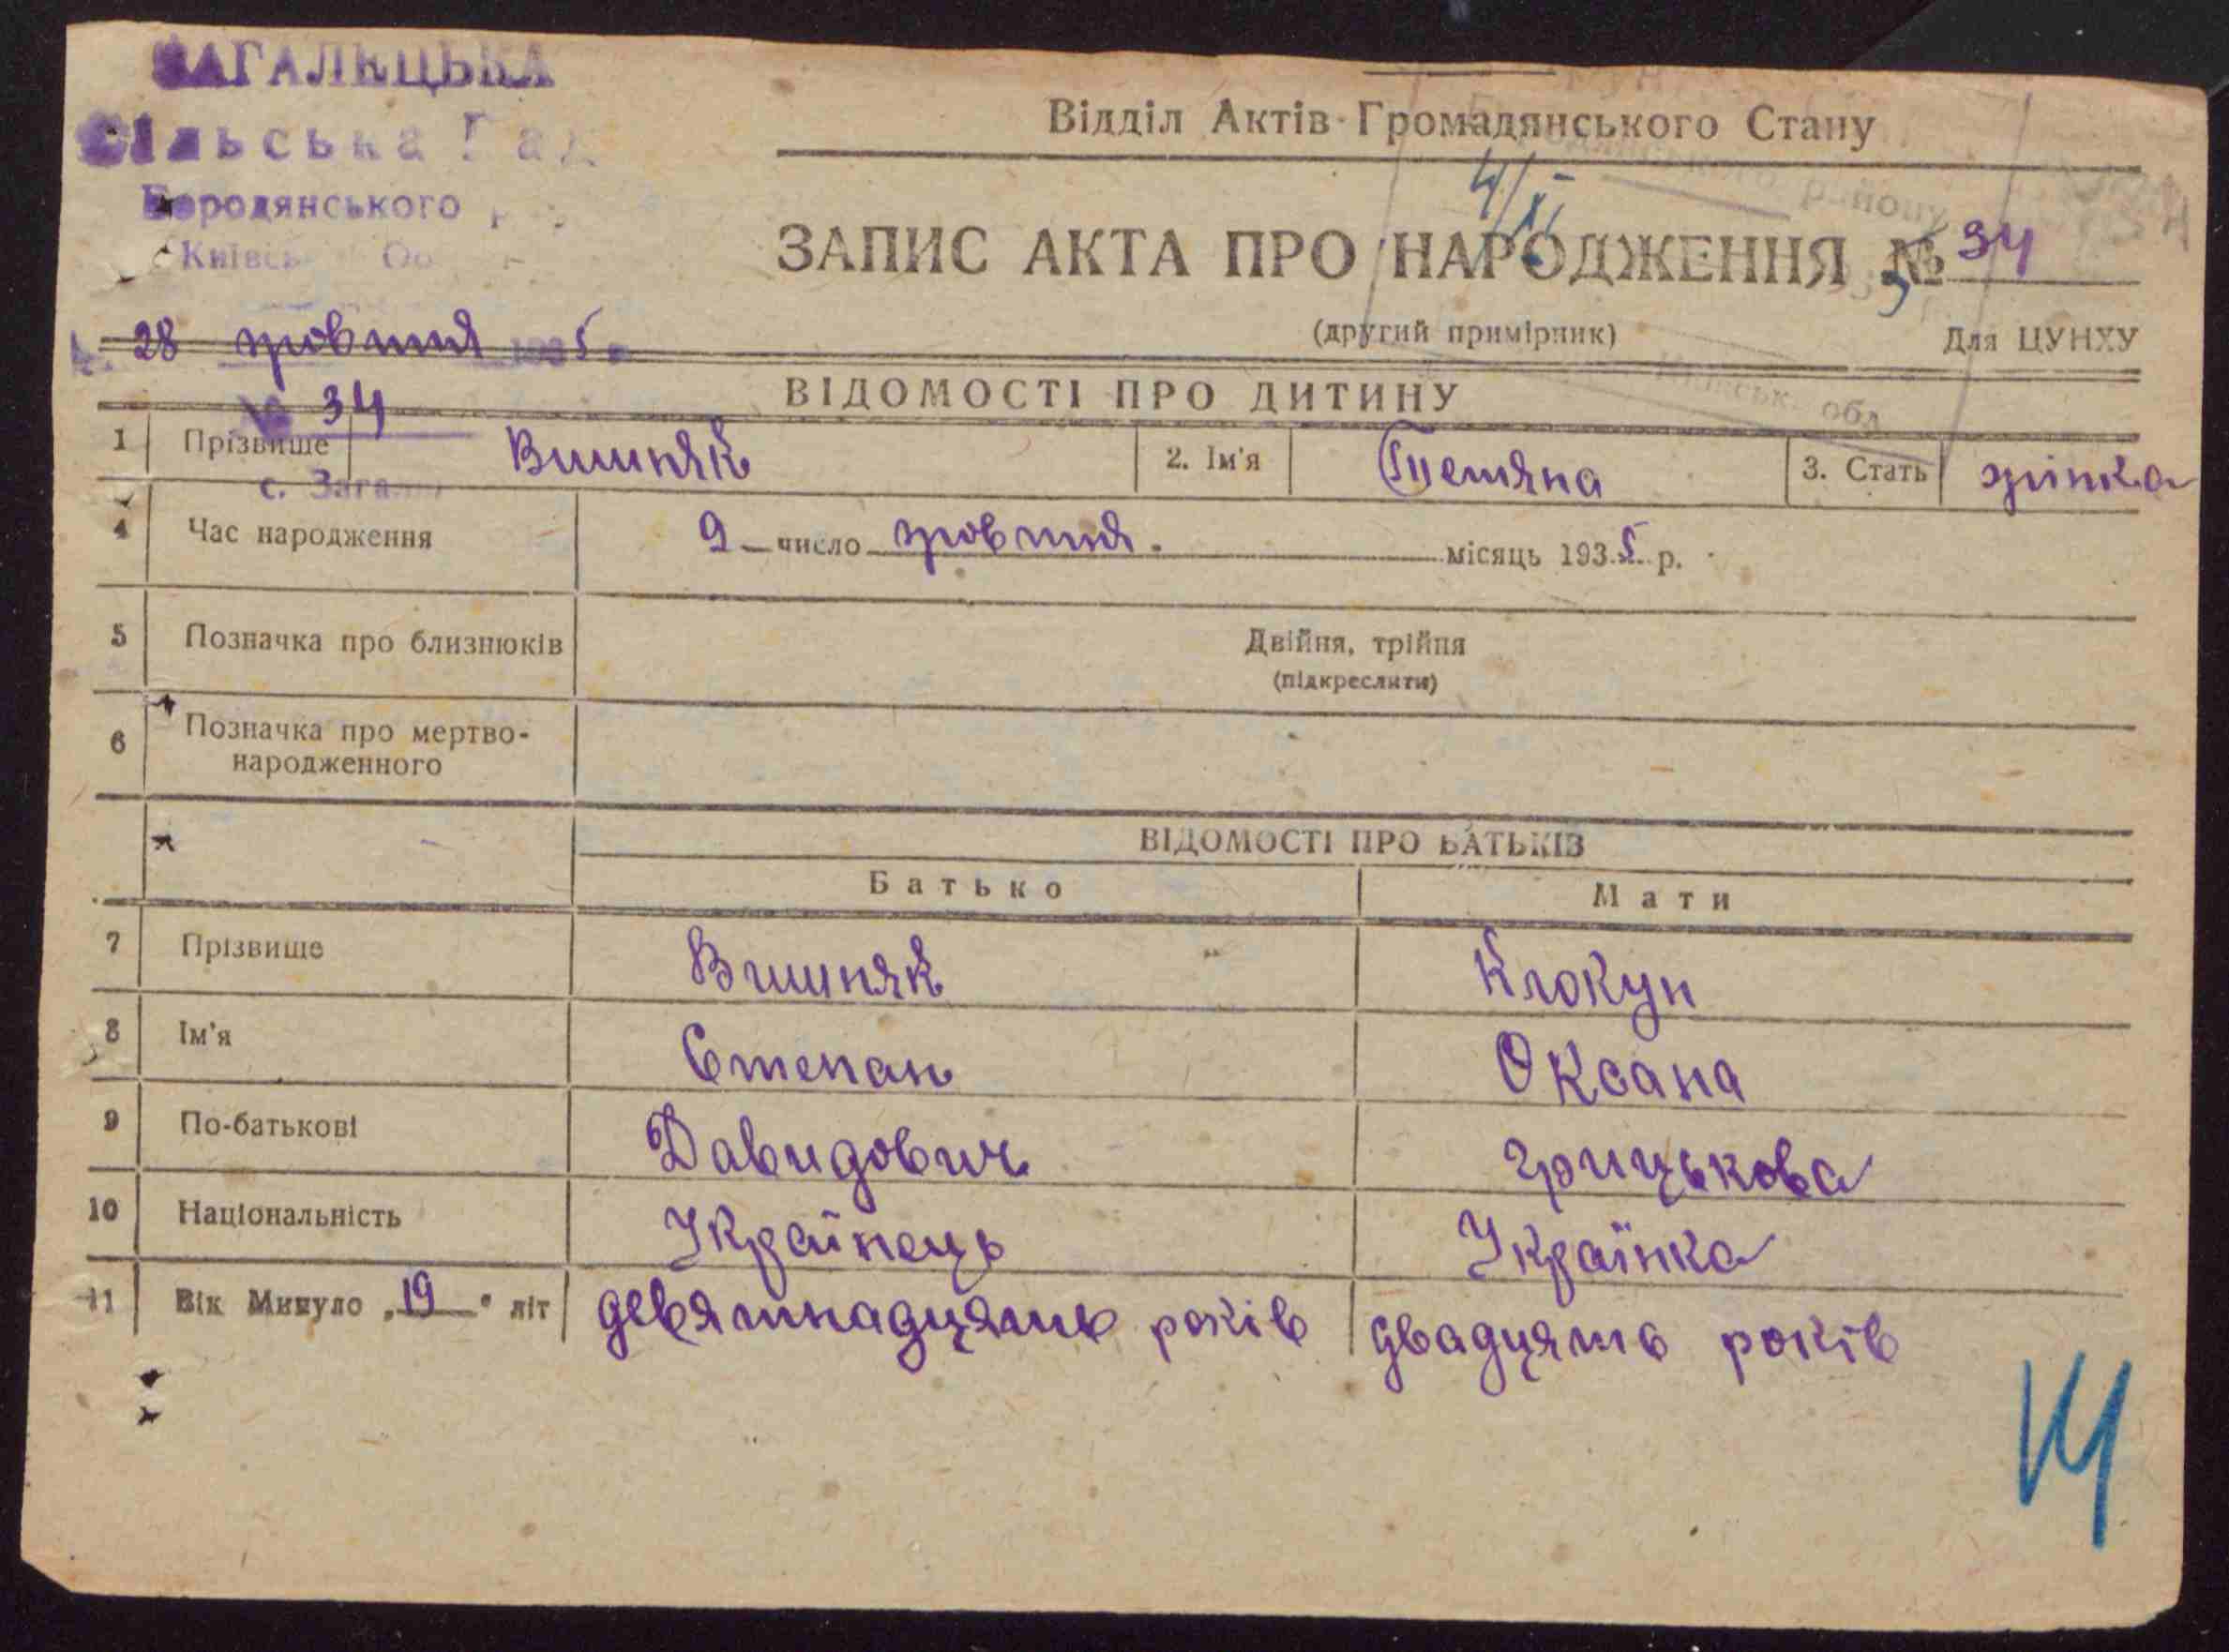 ЗАГАЛЬЦЬКА
Сільська Рад
Бородянського
Київськ Об
28 жовтня 1935
№ 34
с. Загальці
Відділ Актів Громадянського Стану
4/XI
ЗАПИС АКТА ПРО НАРОДЖЕННЯ № 34
(другий примірник) Для ЦУНХУ
району
обл
ВІДОМОСТІ ПРО ДИТИНУ
1 Прізвище Вишняк 2. Ім'я Тетяна 3. Стать жінка
4 Час народження 9 число жовтня. місяць 1935 р.
5 Позначка про близнюків Двійня, трійня
(підкреслити)
6 Позначка про мертво-
народженного
ВІДОМОСТІ ПРО БАТЬКІВ
Батько Мати
7 Прізвище Вишняк Клокун
8 Ім'я Степан Оксана
9 По-батькові Давидович Грицькова
10 Національність Українець Українка
11 Вік Минуло „19" літ девятнадцять років двадцять років